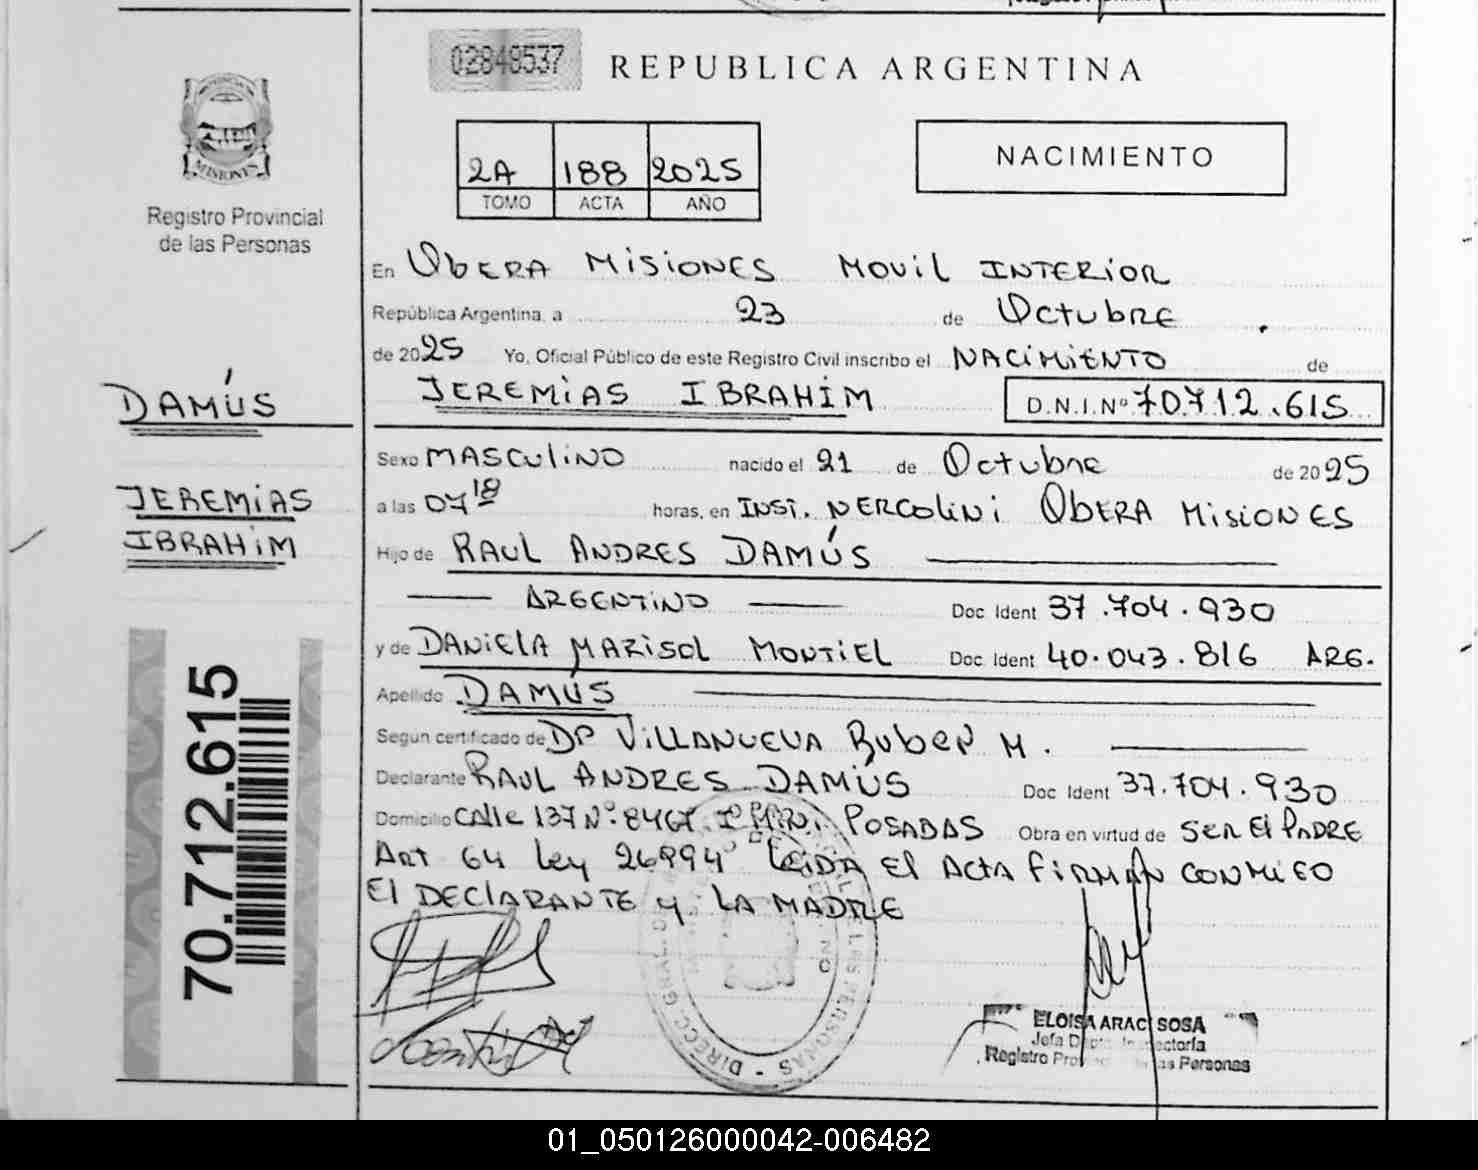 02848537
REPUBLICA ARGENTINA
MISIONES
Registro Provincial
de las Personas
2A 188 2025
TOMO ACTA AÑO
NACIMIENTO
En Obera Misiones Movil Interior
República Argentina, a 23 de Octubre
de 2025 Yo, Oficial Público de este Registro Civil inscribo el NACIMIENTO de
JEREMIAS IBRAHIM D.N.I.Nº 70.712.615
DAMÚS
Sexo MASCULINO nacido el 21 de Octubre de 2025
JEREMIAS
IBRAHIM
a las 07 18 horas, en INST. NERCOLINI OBERA MISIONES
Hijo de RAUL ANDRES DAMÚS
ARGENTINO Doc. Ident 37.704.930
y de DANIELA MARISOL MONTIEL Doc. Ident 40.043.816 ARG.
Apellido DAMÚS
Según certificado de DR VILLANUEVA RUBEN M.
Declarante RAUL ANDRES DAMÚS Doc. Ident 37.704.930
Domicilio CALLE 137 Nº 8467 POSADAS Obra en virtud de SER El PADRE
Art 64 Ley 26994 LEIDA El ACTA FIRMAN CONMIGO
El DECLARANTE y LA MADRE
70.712.615
DIRECC. GRAL. DE LAS PERSONAS
ELOISA ARACI SOSA
Jefa
Registro de las Personas
01_050126000042-006482